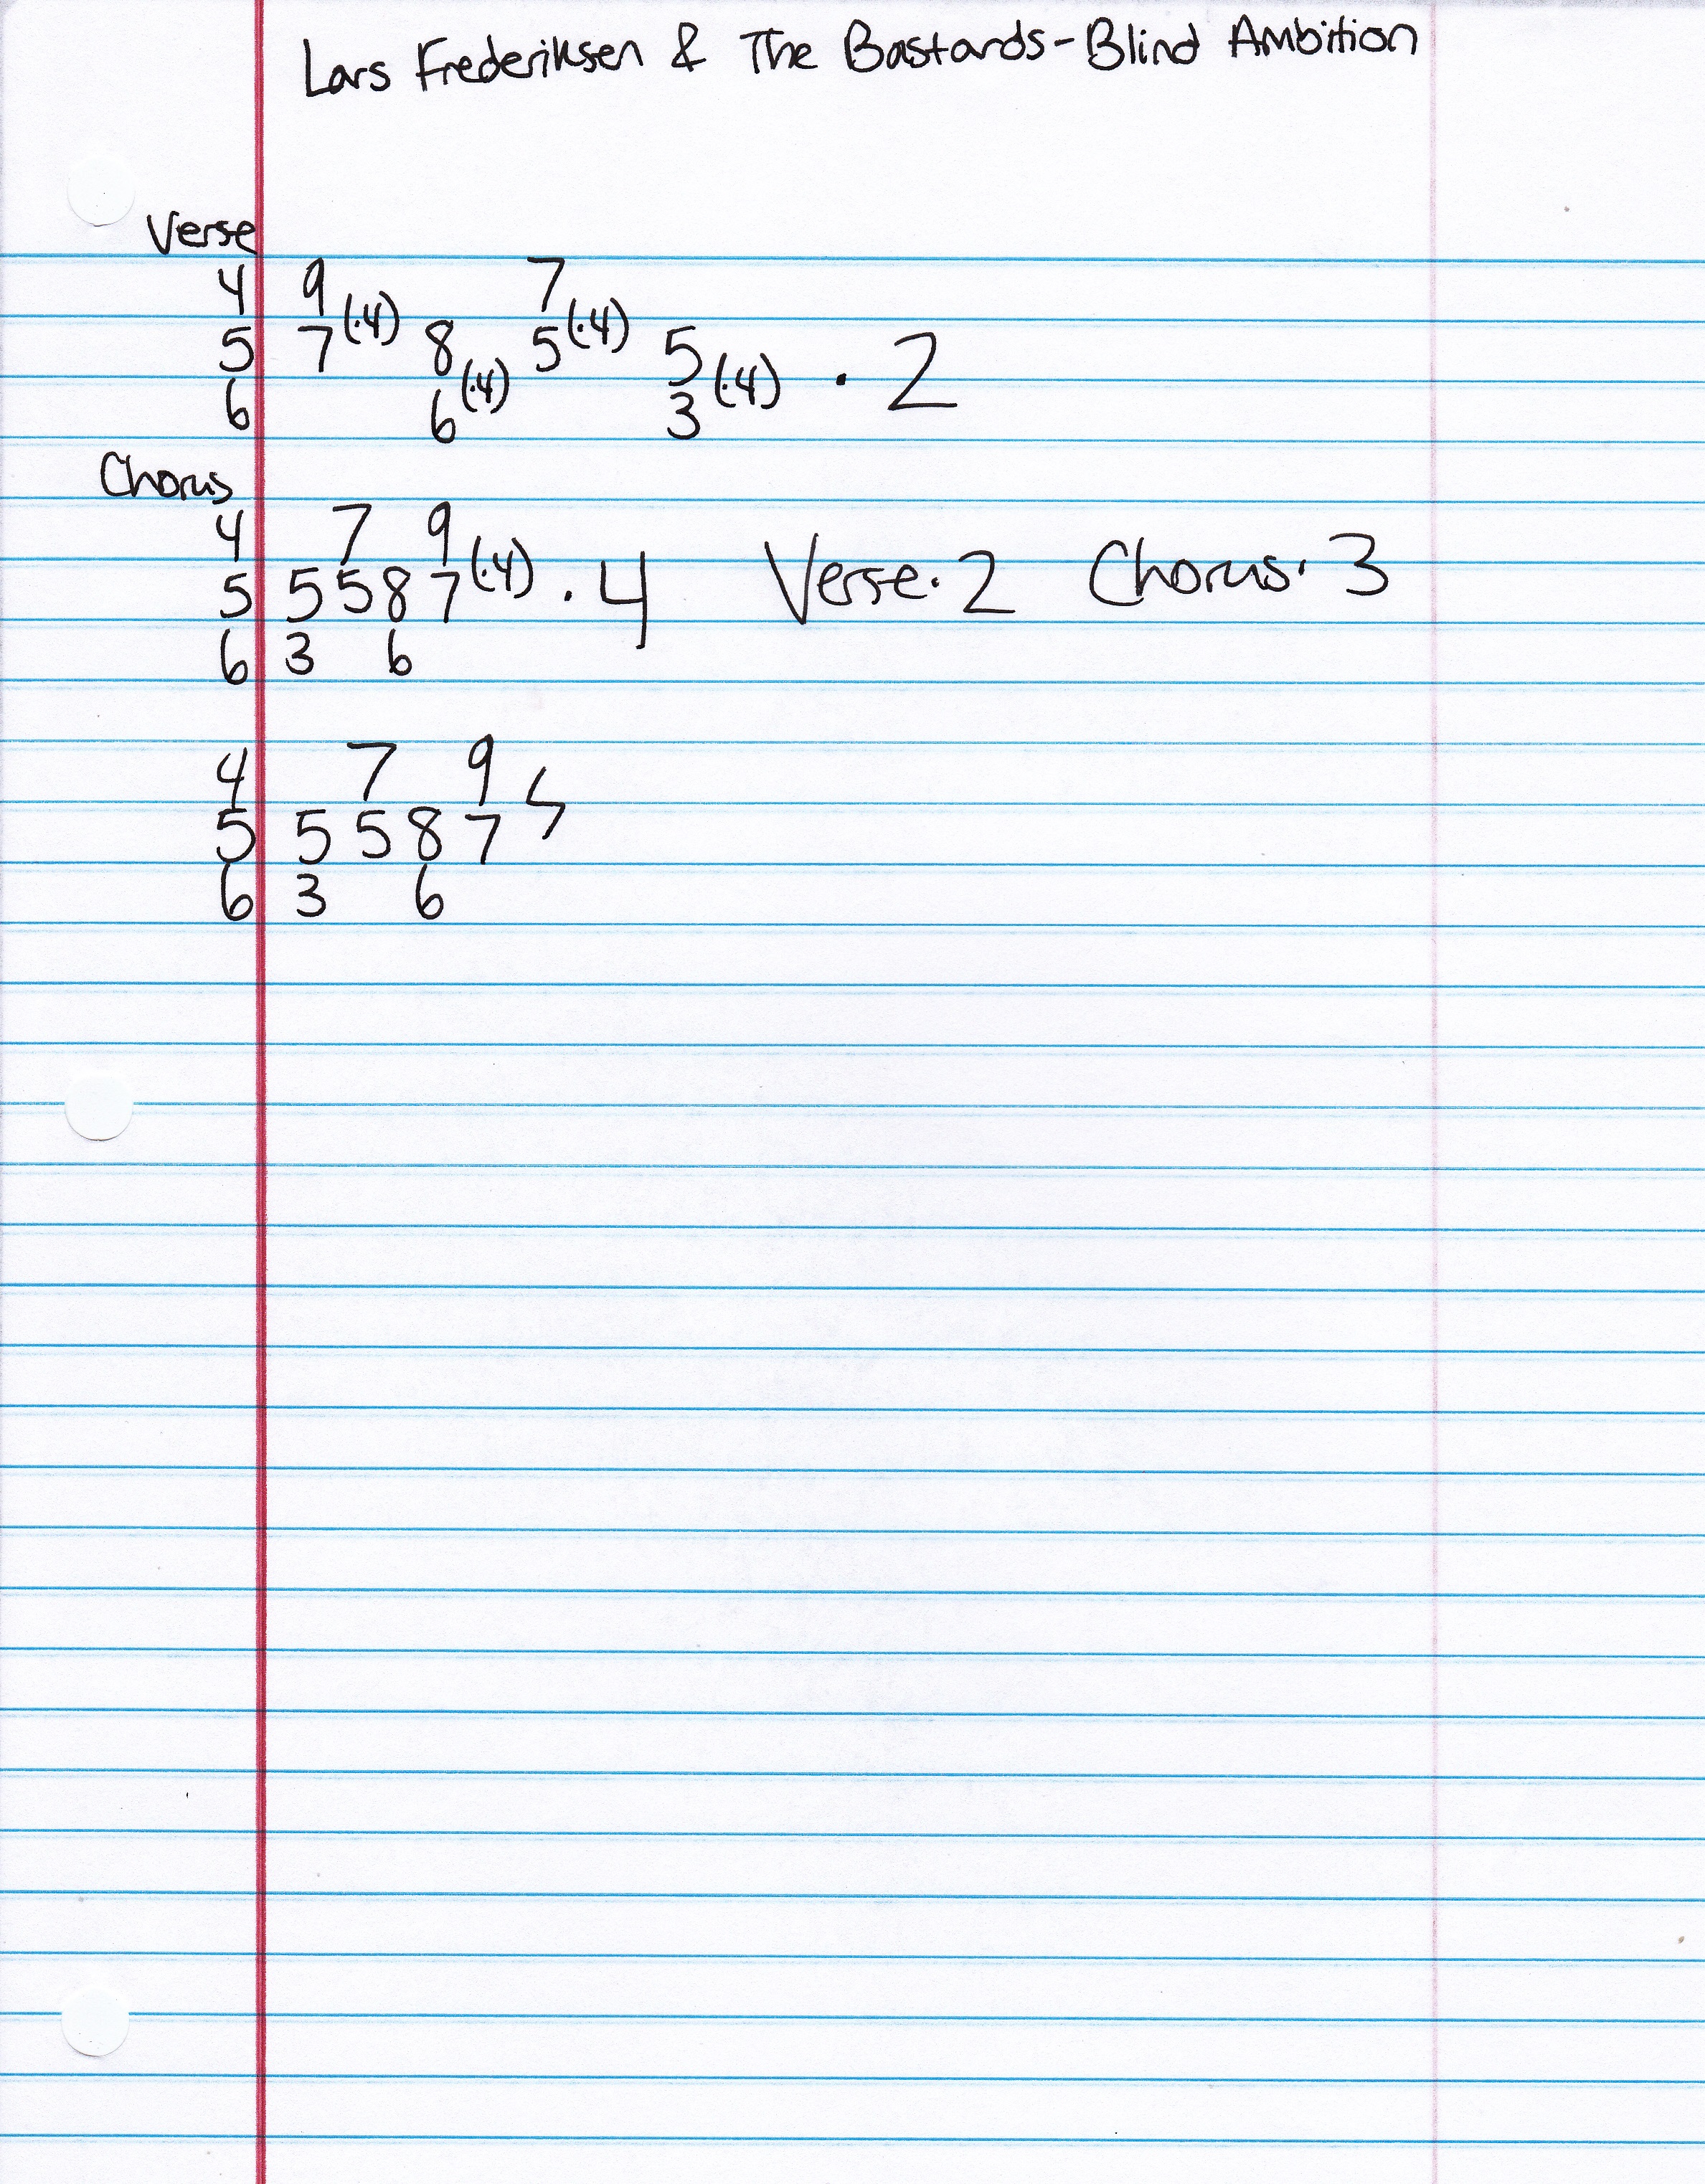 Lars Frederiksen & The Bastards-Blind Ambition
Verse
4 9 7
5 7(·4) 8 5(·4) 5 · 2
6 6(·4) 3(·4)
Chorus
4 7 9
5 5 5 8 7(·4) · 4 Verse·2 Chorus·3
6 3 6
4 7 9
5 5 5 8 7
6 3 6